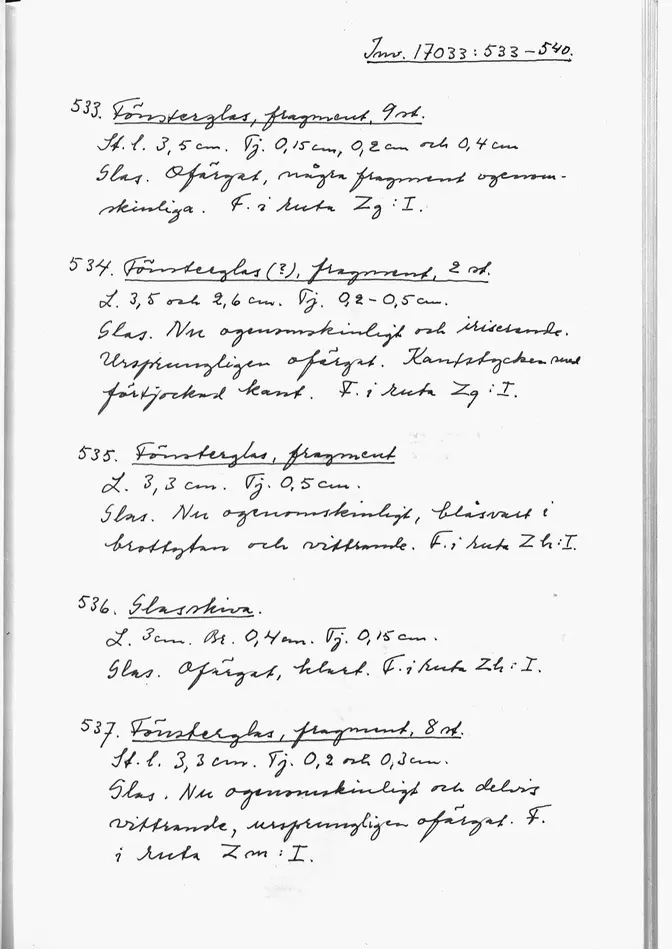 Inv. 17033:533-540.
533. Fönsterglas, fragment, 9 st.
St. l. 3,5 cm. Tj. 0,15 cm, 0,2 cm och 0,4 cm
Glas. Ofärgat, några fragment ogenom-
skinliga. F. i ruta Zg:I.
534. Fönsterglas (?), fragment, 2 st.
L. 3,5 och 2,6 cm. Tj. 0,2-0,5 cm.
Glas. Nu ogenomskinligt och iriserande.
Ursprungligen ofärgat. Kantstycken med
förtjockad kant. F. i ruta Zg:I.
535. Fönsterglas, fragment
L. 3,3 cm. Tj. 0,5 cm.
Glas. Nu ogenomskinligt, blåsvart i
brottytan och vittrande. F. i ruta Zh:I.
536. Glasskiva.
L. 3 cm. Br. 0,4 cm. Tj. 0,15 cm.
Glas. Ofärgat, klart. F. i ruta Zh:I.
537. Fönsterglas, fragment, 8 st.
St. l. 3,3 cm. Tj. 0,2 och 0,3 cm.
Glas. Nu ogenomskinligt och delvis
vittrande, ursprungligen ofärgat. F.
i ruta Zm:I.